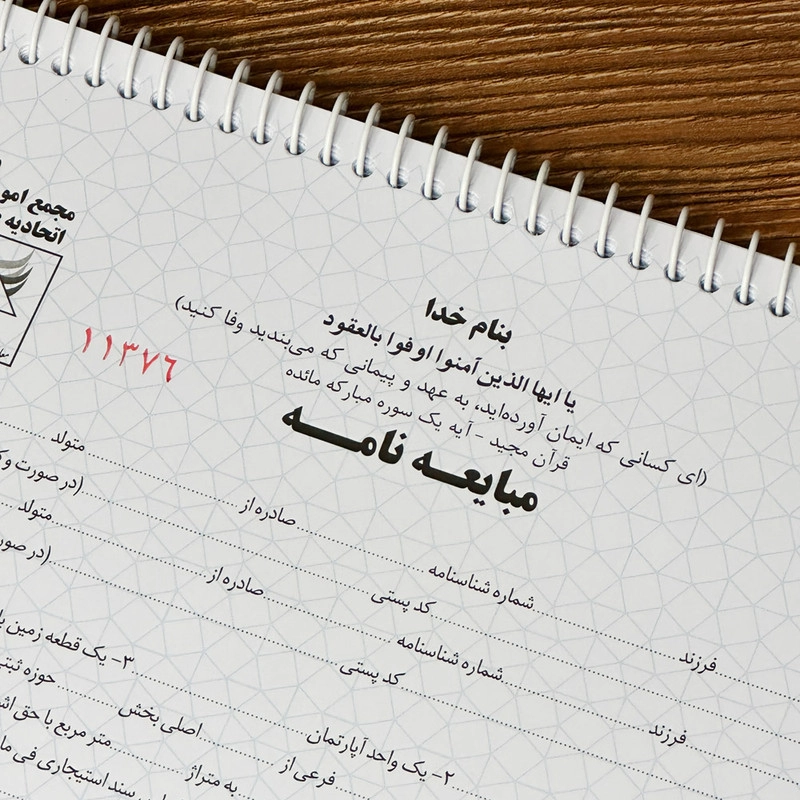 مجمع امو
اتحادیه
۱۱۳۷۶
بنام خدا
یا ایها الذین آمنوا اوفوا بالعقود
(ای کسانی که ایمان آورده‌اید، به عهد و پیمانی که می‌بندید وفا کنید)
قرآن مجید - آیه یک سوره مبارکه مائده
مبایعه نامه
فرزند شماره شناسنامه صادره از متولد
کد پستی (در صورت وک
فرزند شماره شناسنامه صادره از متولد
کد پستی (در صور
۲- یک واحد آپارتمان ۳- یک قطعه زمین با
فرعی از اصلی بخش حوزه ثبتی
به متراژ متر مربع با حق
سند استیجاری فی ما